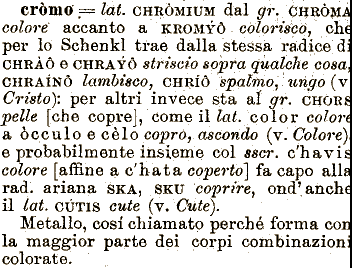 cròmo = lat. CHRÒMIUM dal gr. CHRÒMA
colore accanto a KROMYÔ colorisco, che
per lo Schenkl trae dalla stessa radice di
CHRÀÔ e CHRAYÔ striscio sopra qualche cosa,
CHRAÍNÔ lambisco, CHRÍÔ spalmo, ungo (v
Cristo): per altri invece sta al gr. CHORS
pelle [che copre], come il lat. color colore
a òcculo e cèlo copro, ascondo (v. Colore)
e probabilmente insieme col sscr. c'havis
colore [affine a c'hata coperto] fa capo alla
rad. ariana SKA, SKU coprire, ond' anche
il lat. CÚTIS cute (v. Cute).
Metallo, cosí chiamato perché forma con
la maggior parte dei corpi combinazioni
colorate.